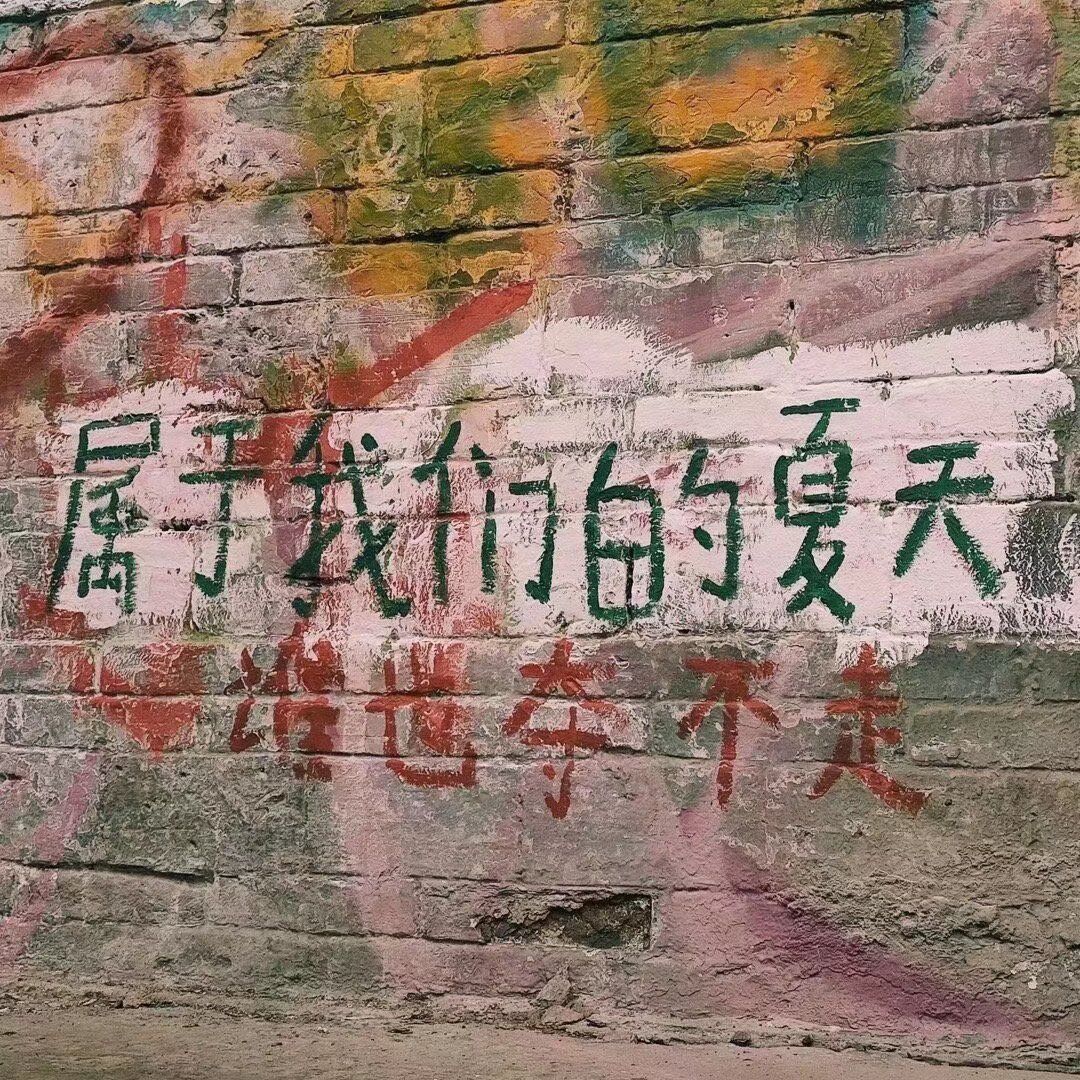 属于我们的夏天
谁也夺不走